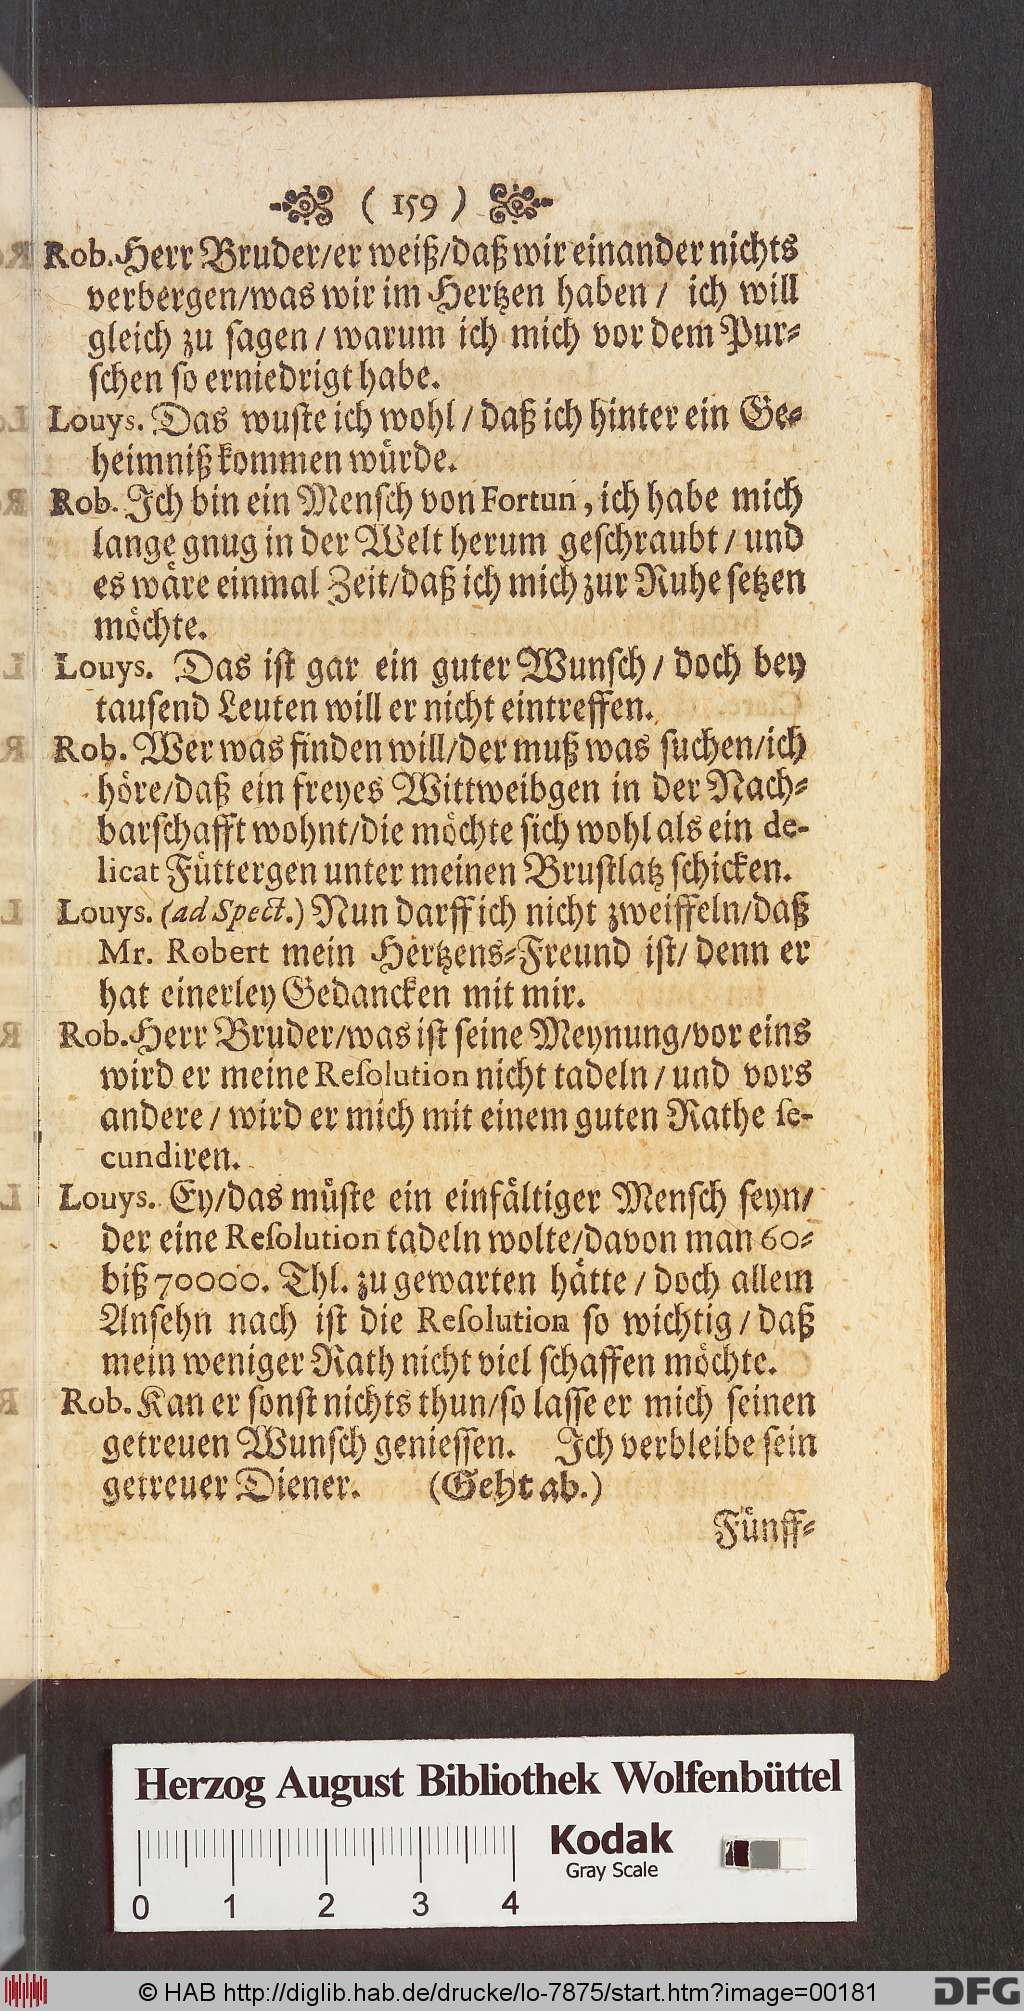 ( 159 )
Rob. Herr Bruder/er weiß/daß wir einander nichts
verbergen/was wir im Hertzen haben / ich will
gleich zu ſagen / warum ich mich vor dem Pur-
ſchen ſo erniedrigt habe.
Louys. Das wuſte ich wohl / daß ich hinter ein Ge-
heimniß kommen wuͤrde.
Rob. Ich bin ein Menſch von Fortun, ich habe mich
lange gnug in der Welt herum geſchraubt / und
es waͤre einmal Zeit/daß ich mich zur Ruhe ſetzen
moͤchte.
Louys. Das iſt gar ein guter Wunſch / doch bey
tauſend Leuten will er nicht eintreffen.
Rob. Wer was finden will/der muß was ſuchen/ich
hoͤre/daß ein freyes Wittweibgen in der Nach-
barſchafft wohnt/die moͤchte ſich wohl als ein de-
licat Fuͤttergen unter meinen Bruſtlatz ſchicken.
Louys. (ad Spect.) Nun darff ich nicht zweiffeln/daß
Mr. Robert mein Hertzens-Freund iſt/ denn er
hat einerley Gedancken mit mir.
Rob. Herr Bruder/was iſt ſeine Meynung/vor eins
wird er meine Reſolution nicht tadeln / und vors
andere / wird er mich mit einem guten Rathe ſe-
cundiren.
Louys. Ey/das muͤſte ein einfaͤltiger Menſch ſeyn/
der eine Reſolution tadeln wolte/davon man 60-
biß 70000. Thl. zu gewarten haͤtte / doch allem
Anſehn nach iſt die Reſolution ſo wichtig / daß
mein weniger Rath nicht viel ſchaffen moͤchte.
Rob. Kan er ſonſt nichts thun/ſo laſſe er mich ſeinen
getreuen Wunſch genieſſen. Ich verbleibe ſein
getreuer Diener. (Geht ab.)
Fuͤnff-
Herzog August Bibliothek Wolfenbüttel
Kodak
Gray Scale
0 1 2 3 4
© HAB http://diglib.hab.de/drucke/lo-7875/start.htm?image=00181
DFG